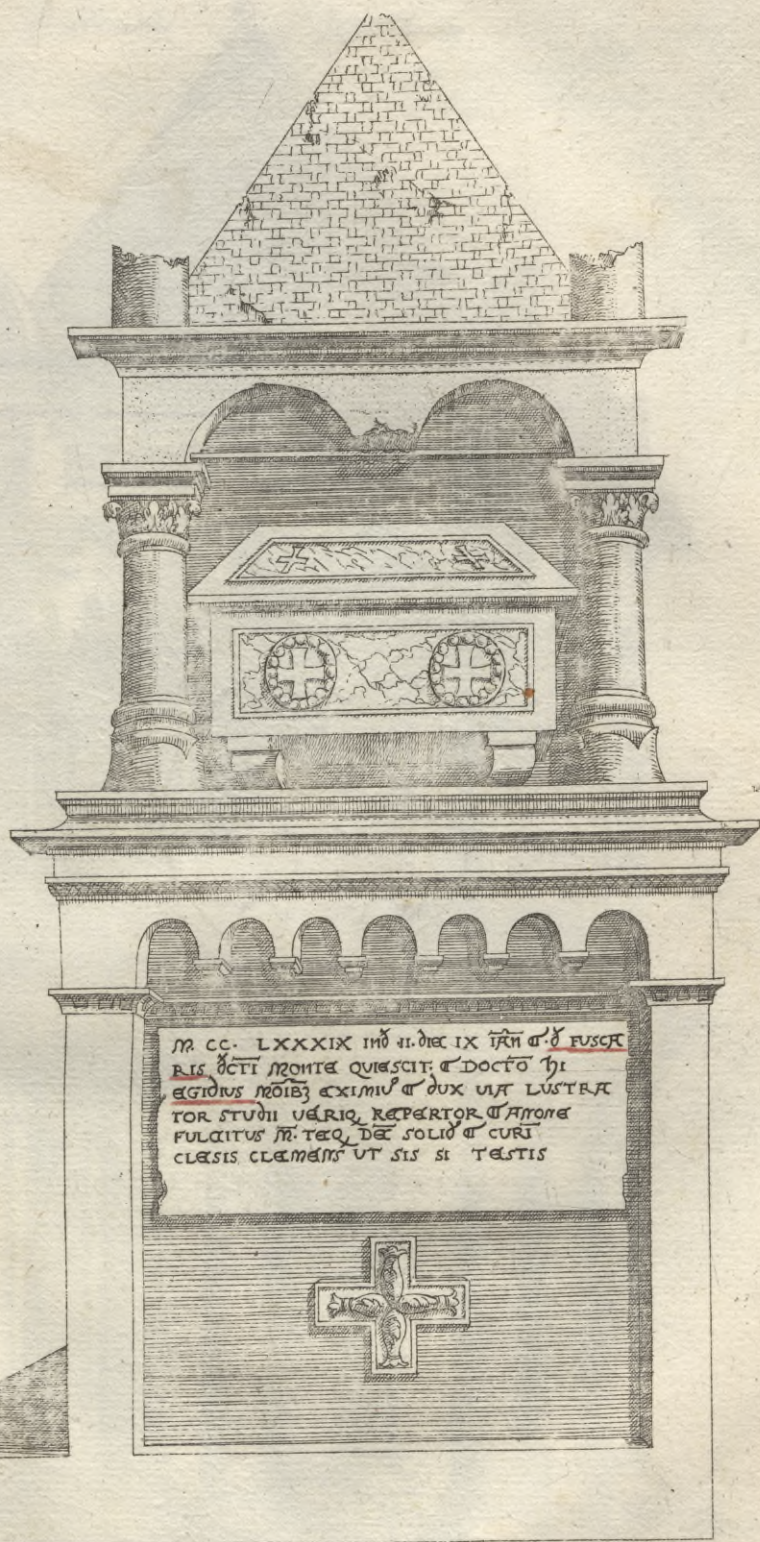 M. CC. LXXXIX IND̄ .II. DIE IX IĀN ⁊. D̄ FUSCA
RIS D̄CTI MONTE QUIESCIT: ⁊ DOCTŌ HI
EGIDIUS MŌIBꝫ EXIMIUꝰ ⁊ DUX UIA LUSTRA
TOR STUDII UERIQꝫ REPERTOR ⁊ AMONE
FULCITUS M̄. TEQꝫ DĒ SOLID̄ ⁊ CURĪ
CLESIS CLEMENS UT SIS SI TESTIS